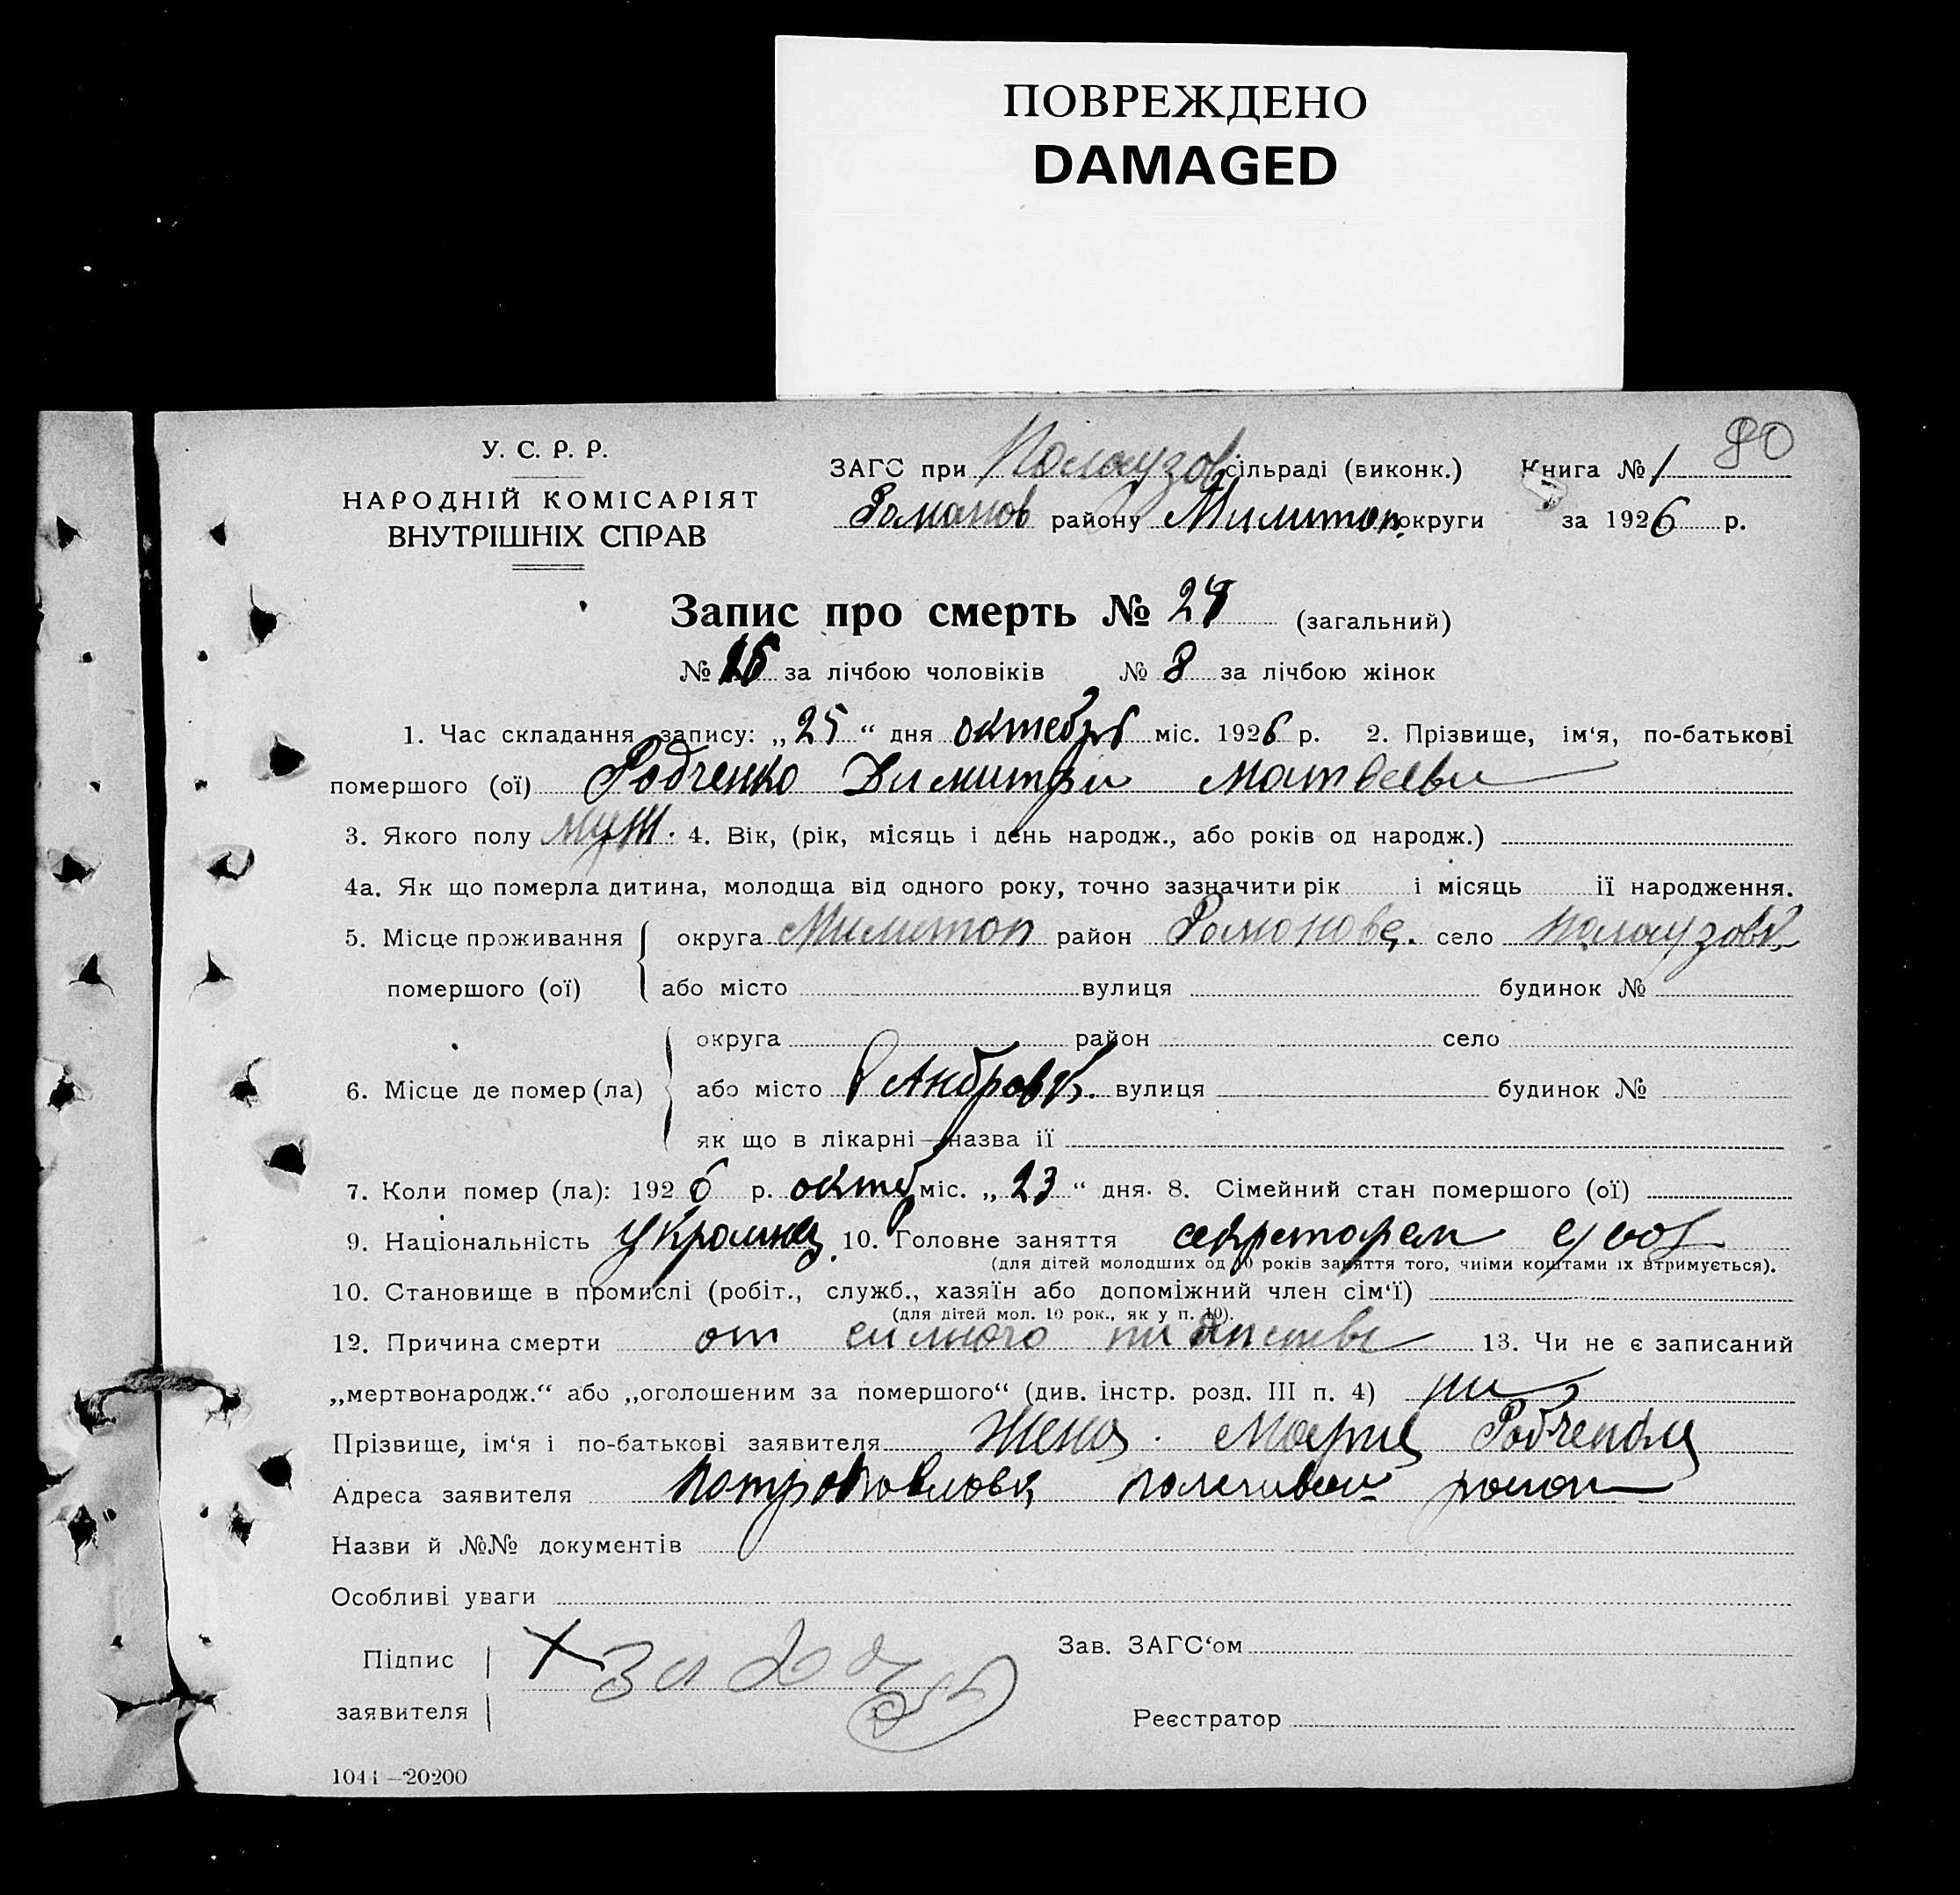 ПОВРЕЖДЕНО
DAMAGED
80
У. С. Р. Р.
НАРОДНІЙ КОМІСАРІЯТ
ВНУТРІШНІХ СПРАВ
ЗАГС при сільраді (виконк.) Книга № 1
Романов району Милитоп. округи за 1926 р.
Запис про смерть № (загальний)
№ 16 за лічбою чоловіків № 8 за лічбою жінок
1. Час складання запису: „25“ дня октебря міс. 1926 р. 2. Прізвище, ім‘я, по-батькові
помершого (ої) Родченко Димитри Матвееви
3. Якого полу муж. 4. Вік, (рік, місяць і день народж., або років од народж.)
4а. Як що померла дитина, молодща від одного року, точно зазначити рік і місяць її народження.
5. Місце проживання округа Милитоп район село
помершого (ої) або місто вулиця будинок №
округа район село
6. Місце де помер (ла) або місто вулиця будинок №
як що в лікарні—назва її
7. Коли помер (ла): 1926 р. октеб міс. „23“ дня. 8. Сімейний стан помершого (ої)
9. Національність 10. Головне заняття секретарем
(для дітей молодших од 10 років заняття того, чиїми коштами їх втримується).
10. Становище в промислі (робіт., служб., хазяїн або допоміжний член сім‘ї)
(для дітей мол. 10 рок., як у п. 10).
12. Причина смерти от силного 13. Чи не є записаний
„мертвонародж.“ або „оголошеним за помершого“ (див. інстр. розд. III п. 4) ни
Прізвище, ім‘я і по-батькові заявителя Жена. Мария
Адреса заявителя
Назви й №№ документів
Особливі уваги
Підпис
заявителя
Зав. ЗАГС‘ом
Реєстратор
1044—20200